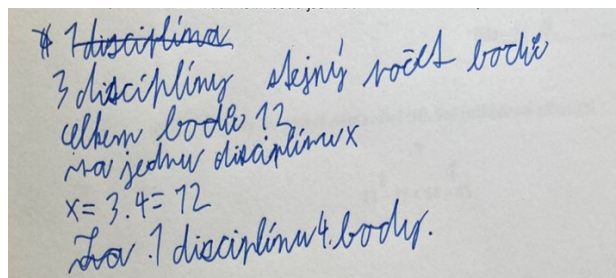 1 disciplína
3 disciplíny stejný počet bodů
celkem bodů 12
na jednu disciplínu x
x = 3.4 = 12
Za 1 disciplínu 4 body.